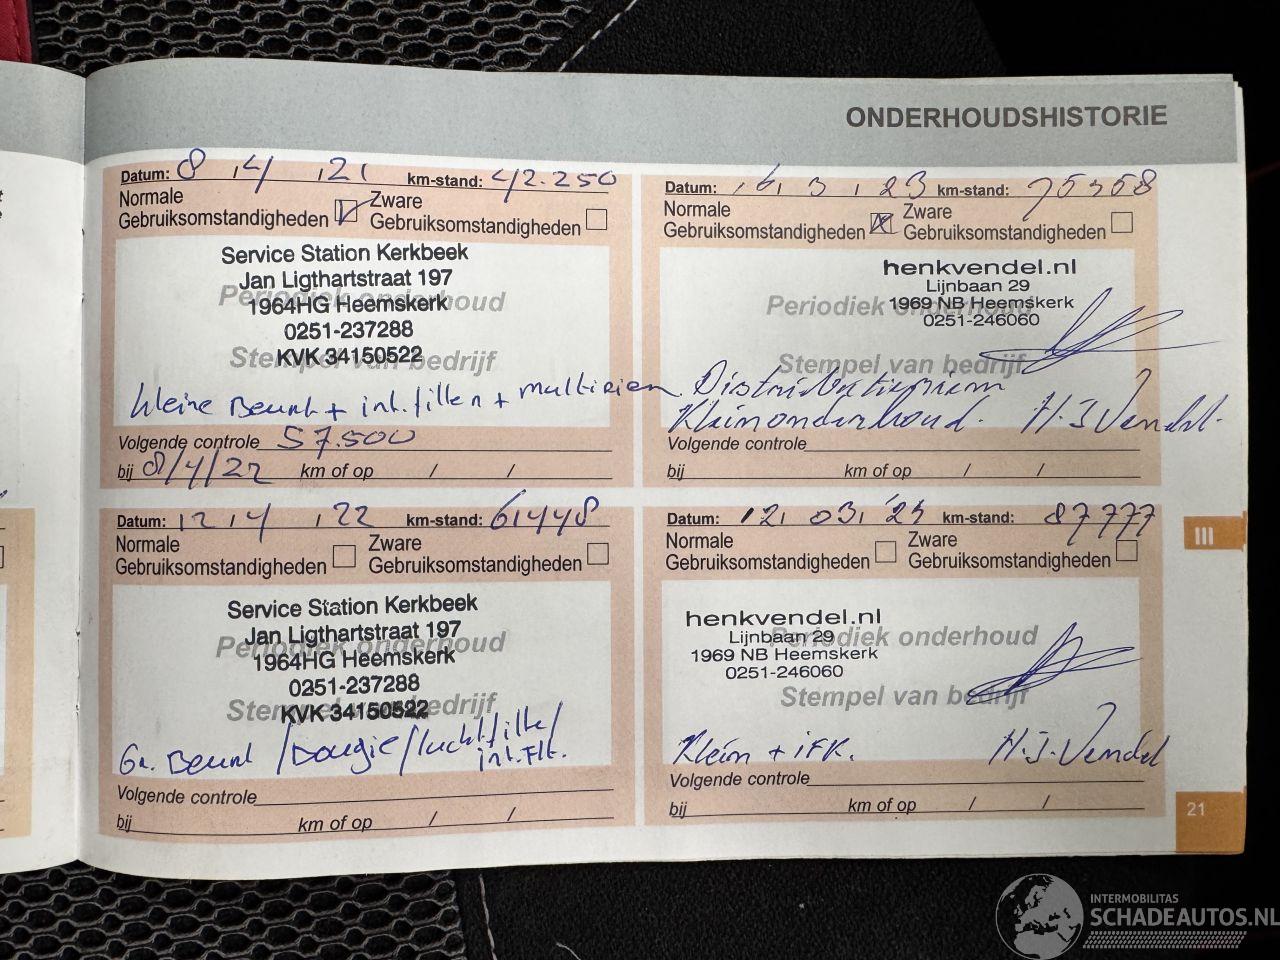 ONDERHOUDSHISTORIE
Datum: 8 , 4 , 21 km-stand: 42.250
Normale Gebruiksomstandigheden Zware Gebruiksomstandigheden
Service Station Kerkbeek
Jan Ligthartstraat 197
1964HG Heemskerk
0251-237288
KVK 34150522
Periodiek onderhoud
Stempel van bedrijf
kleine Beurt + int. filter + multiriem
Volgende controle 57.500
bij 8/4/22 km of op / /
Datum: 16, 3 , 23 km-stand: 75758
Normale Gebruiksomstandigheden Zware Gebruiksomstandigheden
henkvendel.nl
Lijnbaan 29
1969 NB Heemskerk
0251-246060
Periodiek onderhoud
Stempel van bedrijf
Distributieriem
Klein onderhoud. H.J. Vendel.
Volgende controle
bij km of op / /
Datum: 12 , 4 , 22 km-stand: 61448
Normale Gebruiksomstandigheden Zware Gebruiksomstandigheden
Service Station Kerkbeek
Jan Ligthartstraat 197
1964HG Heemskerk
0251-237288
KVK 34150522
Periodiek onderhoud
Stempel van bedrijf
Gr. Beurt /Bougie/luchtfilter/
int. Flt.
Volgende controle
bij km of op / /
Datum: 12, 03, '24 km-stand: 87777
Normale Gebruiksomstandigheden Zware Gebruiksomstandigheden
henkvendel.nl
Lijnbaan 29
1969 NB Heemskerk
0251-246060
Periodiek onderhoud
Stempel van bedrijf
Klein + iFK. H.J. Vendel
Volgende controle
bij km of op / /
III
21
INTERMOBILITAS
SCHADEAUTOS.NL